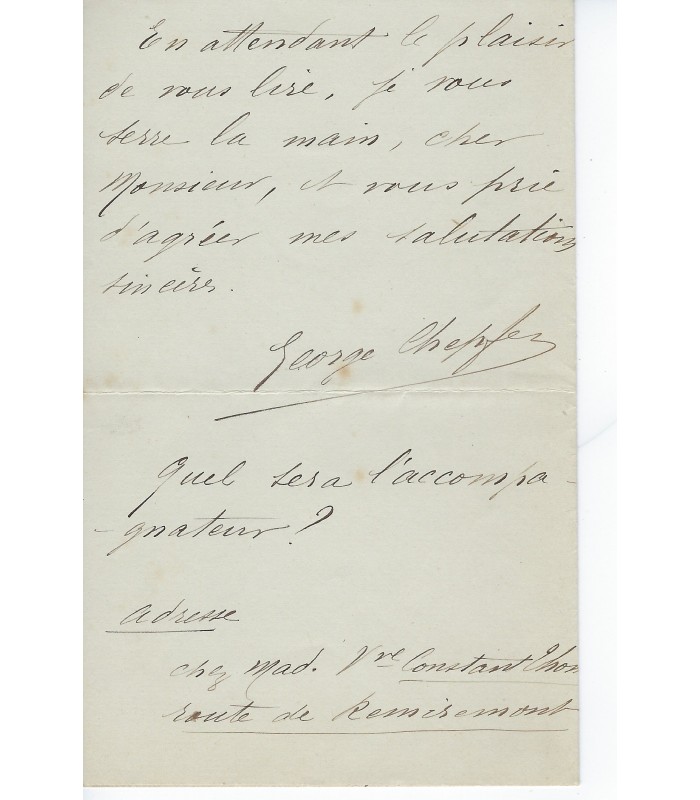 En attendant le plaisir
de vous lire, je vous
serre la main, cher
Monsieur, et vous prie
d'agréer mes salutations
sincères.
George Chepfer
Quel sera l'accompa-
-gnateur?
adresse
chez Mad. Vve Constant
route de Remiremont